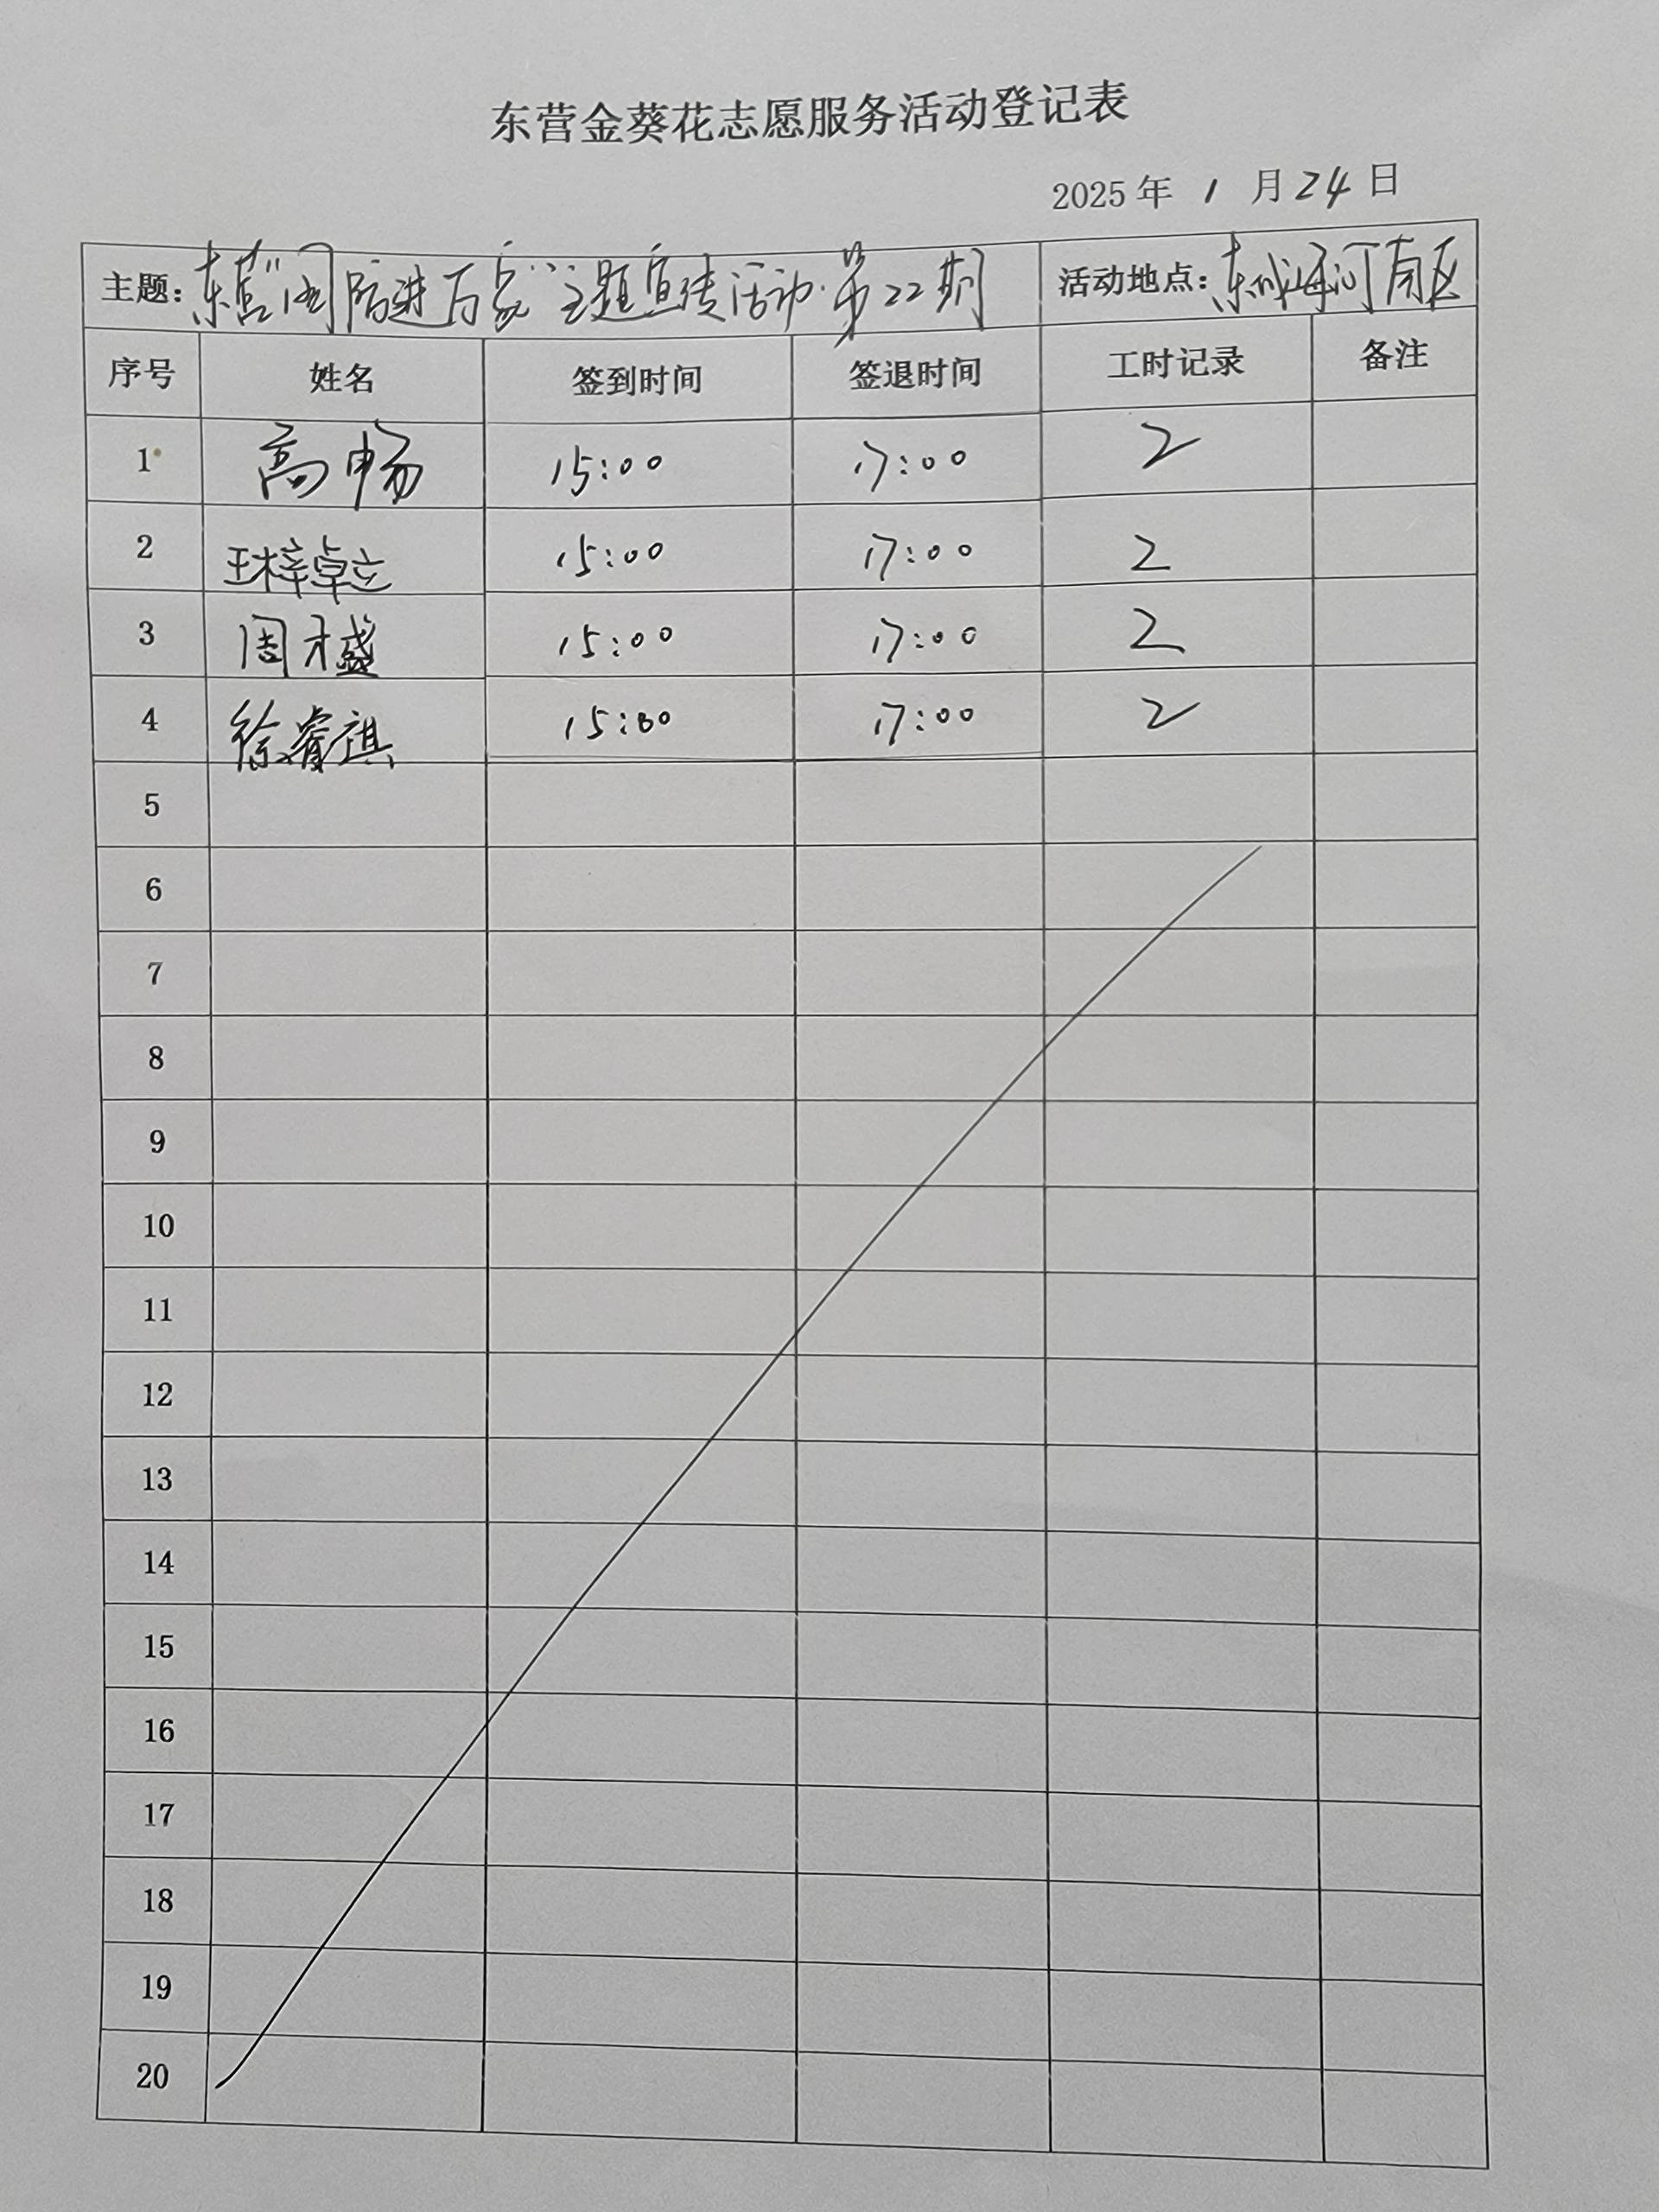 东营金葵花志愿服务活动登记表
2025 年 1 月 24 日
主题: 东营"国防进万家"主题宣传活动·第22期 活动地点: 东城海河南区
序号 姓名 签到时间 签退时间 工时记录 备注
1 高畅 15:00 17:00 2
2 王梓卓立 15:00 17:00 2
3 周才盛 15:00 17:00 2
4 徐睿祺 15:00 17:00 2
5
6
7
8
9
10
11
12
13
14
15
16
17
18
19
20